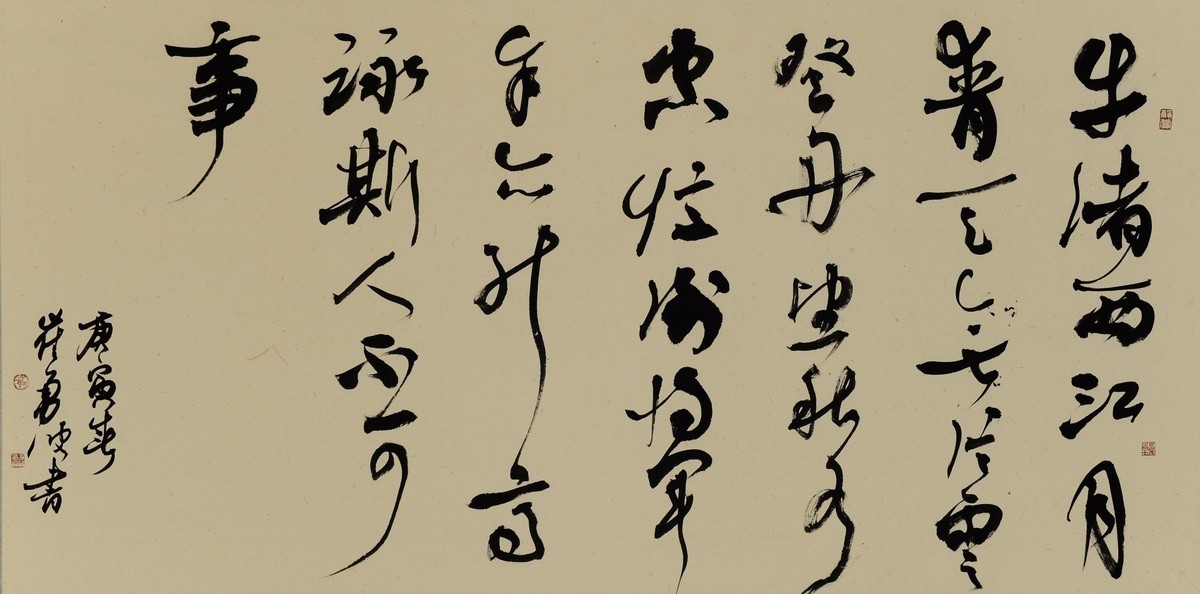 牛渚西江月
青天無片雲
登舟望秋月
空憶謝將軍
余亦能高
詠斯人不可
事
庚寅春
崔勇波書